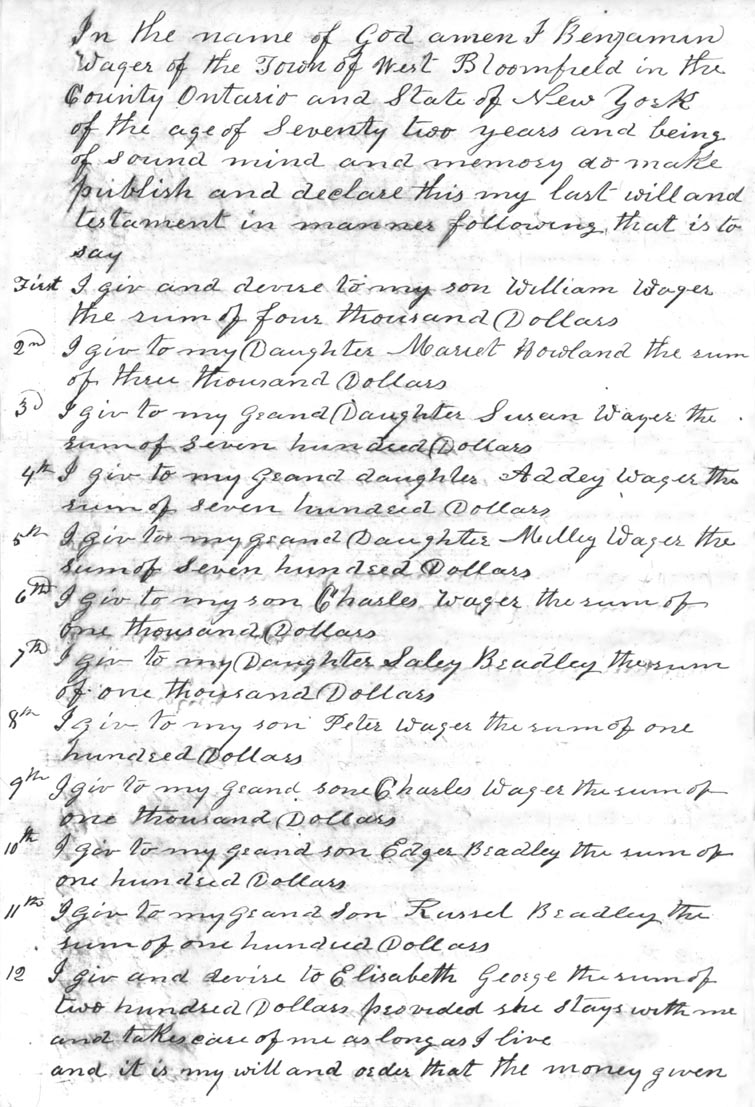 In the name of God amen I Benjamin
Wager of the Town of West Bloomfield in the
County Ontario and State of New York
of the age of Seventy two years and being
of sound mind and memory do make
publish and declare this my last will and
testament in manner following that is to
say
First I giv and devise to my son William Wager
the sum of four thousand Dollars
2nd I giv to my Daughter Mariet Howland the sum
of three thousand Dollars
3d I giv to my Grand Daughter Susan Wager the
sum of seven hundred Dollars
4th I giv to my Grand daughter Addey Wager the
sum of seven hundred Dollars
5th I giv to my Grand Daughter Milley Wager the
sum of Seven hundred Dollars
6th I giv to my son Charles Wager the sum of
one thousand Dollars
7th I giv to my Daughter Saley Bradley the sum
of one thousand Dollars
8th I giv to my son Peter Wager the sum of one
hundred Dollars
9th I giv to my Grand sone Charles Wager the sum of
one thousand Dollars
10th I giv to my Grand son Edger Bradley the sum of
one hundred Dollars
11th I giv to my Grand Son Russel Bradley the
sum of one hundred Dollars
12 I giv and devise to Elisabeth George the sum of
two hundred Dollars provided she stays with me
and takes care of me as long as I live
and it is my will and order that the money given